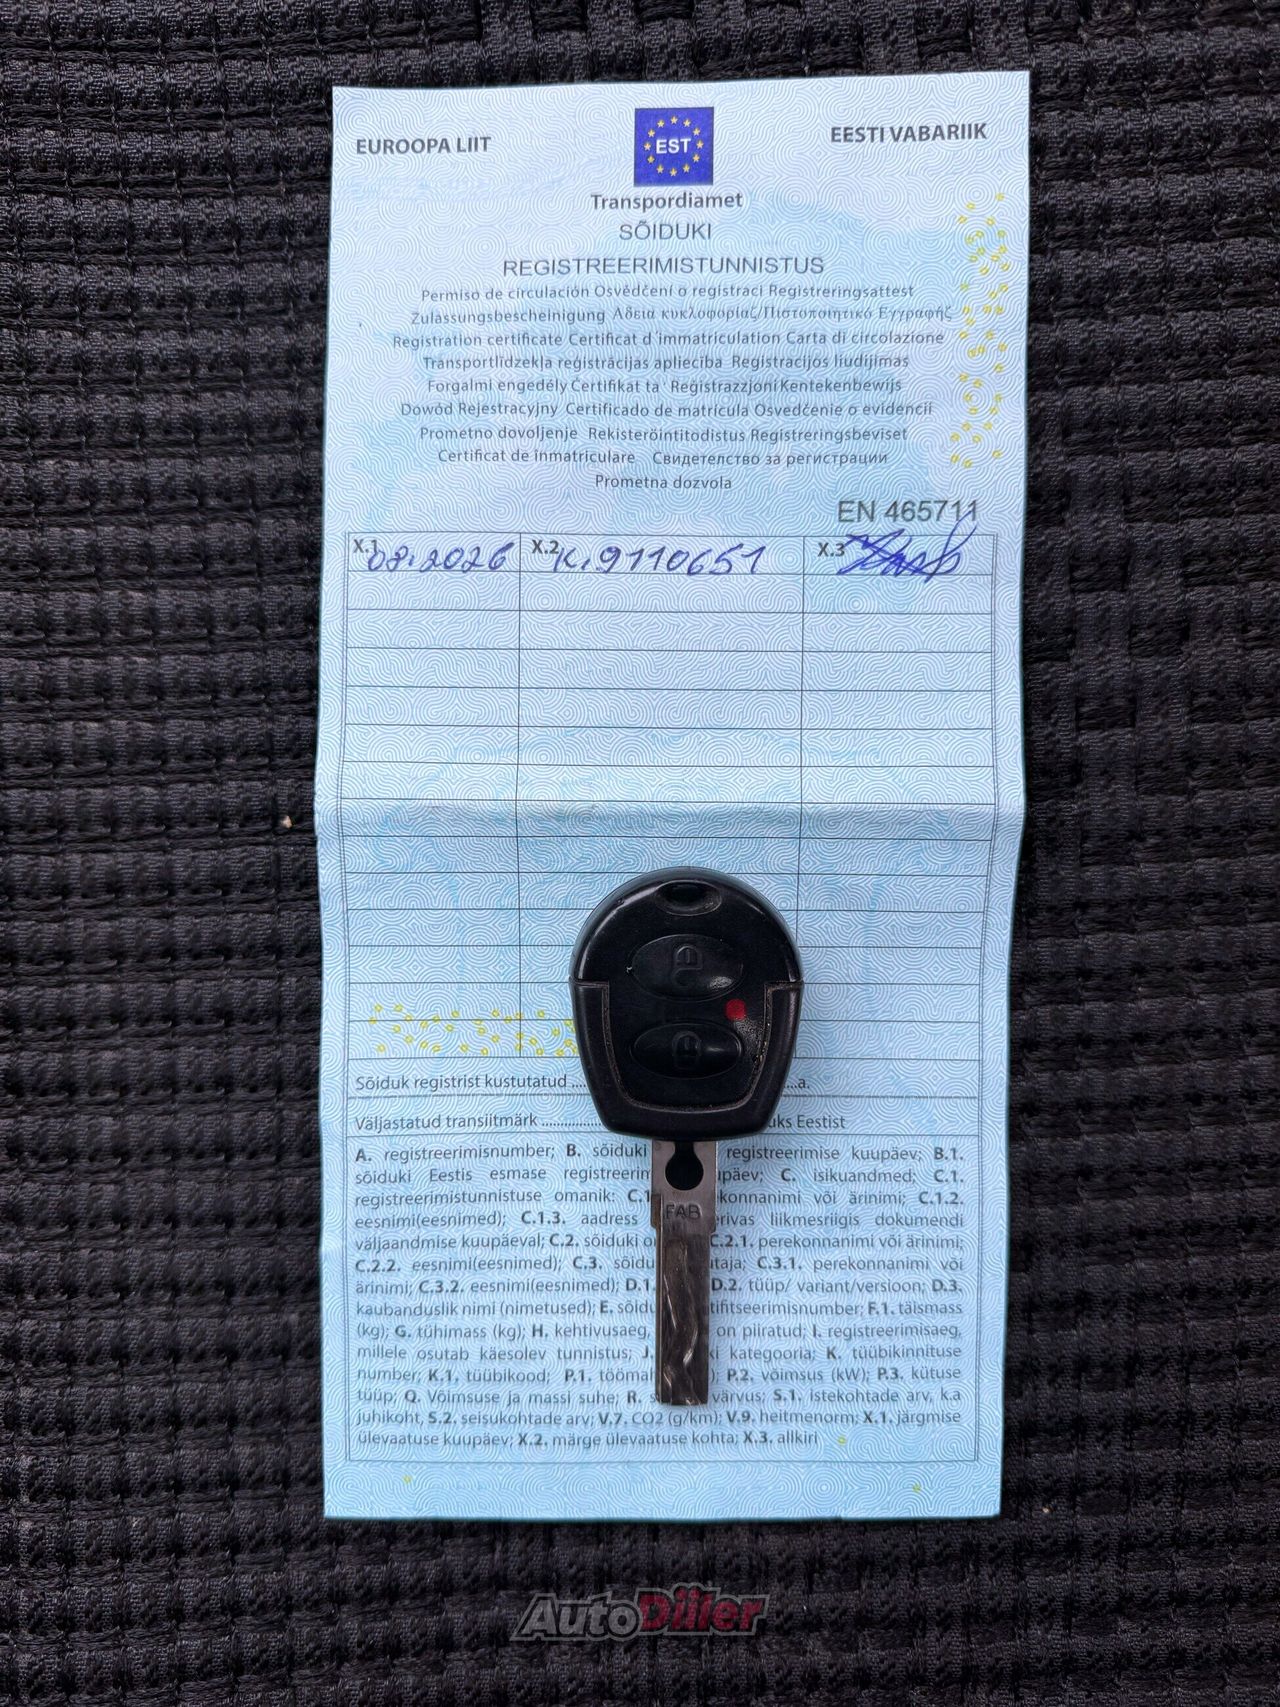 EUROOPA LIIT
EST
EESTI VABARIIK
Transpordiamet
SÕIDUKI
REGISTREERIMISTUNNISTUS
Permiso de circulación Osvědčení o registraci Registreringsattest
Zulassungsbescheinigung Αδεια κυκλοφορίας/Πιστοποιητικό Εγγραφής
Registration certificate Certificat d'immatriculation Carta di circolazione
Transportlīdzekļa reģistrācijas apliecība Registracijos liudijimas
Forgalmi engedély Ċertifikat ta' Reġistrazzjoni Kentekenbewijs
Dowód Rejestracyjny Certificado de matrícula Osvedčenie o evidencii
Prometno dovoljenje Rekisteröintitodistus Registreringsbeviset
Certificat de înmatriculare Свидетелство за регистрации
Prometna dozvola
EN 465711
X.1 08.2026 X.2 K.9110651 X.3
Sõiduk registrist kustutatud ............a.
Väljastatud transiitmärk ............ks Eestist
A. registreerimisnumber; B. sõiduki registreerimise kuupäev; B.1.
sõiduki Eestis esmase registreerim päev; C. isikuandmed; C.1.
registreerimistunnistuse omanik: C.1 ekonnanimi või ärinimi; C.1.2.
eesnimi(eesnimed); C.1.3. aadress erivas liikmesriigis dokumendi
väljaandmise kuupäeval; C.2. sõiduki o C.2.1. perekonnanimi või ärinimi;
C.2.2. eesnimi(eesnimed); C.3. sõidu taja; C.3.1. perekonnanimi või
ärinimi; C.3.2. eesnimi(eesnimed); D.1. D.2. tüüp/ variant/versioon; D.3.
kaubanduslik nimi (nimetused); E. sõidu tifitseerimisnumber; F.1. täismass
(kg); G. tühimass (kg); H. kehtivusaeg, on piiratud; I. registreerimisaeg,
millele osutab käesolev tunnistus; J. ki kategooria; K. tüübikinnituse
number; K.1. tüübikood; P.1. tööma ); P.2. võimsus (kW); P.3. kütuse
tüüp; Q. Võimsuse ja massi suhe; R. s värvus; S.1. istekohtade arv, k.a
juhikoht, S.2. seisukohtade arv; V.7. CO2 (g/km); V.9. heitmenorm; X.1. järgmise
ülevaatuse kuupäev; X.2. märge ülevaatuse kohta; X.3. allkiri
FAB
AutoDiller